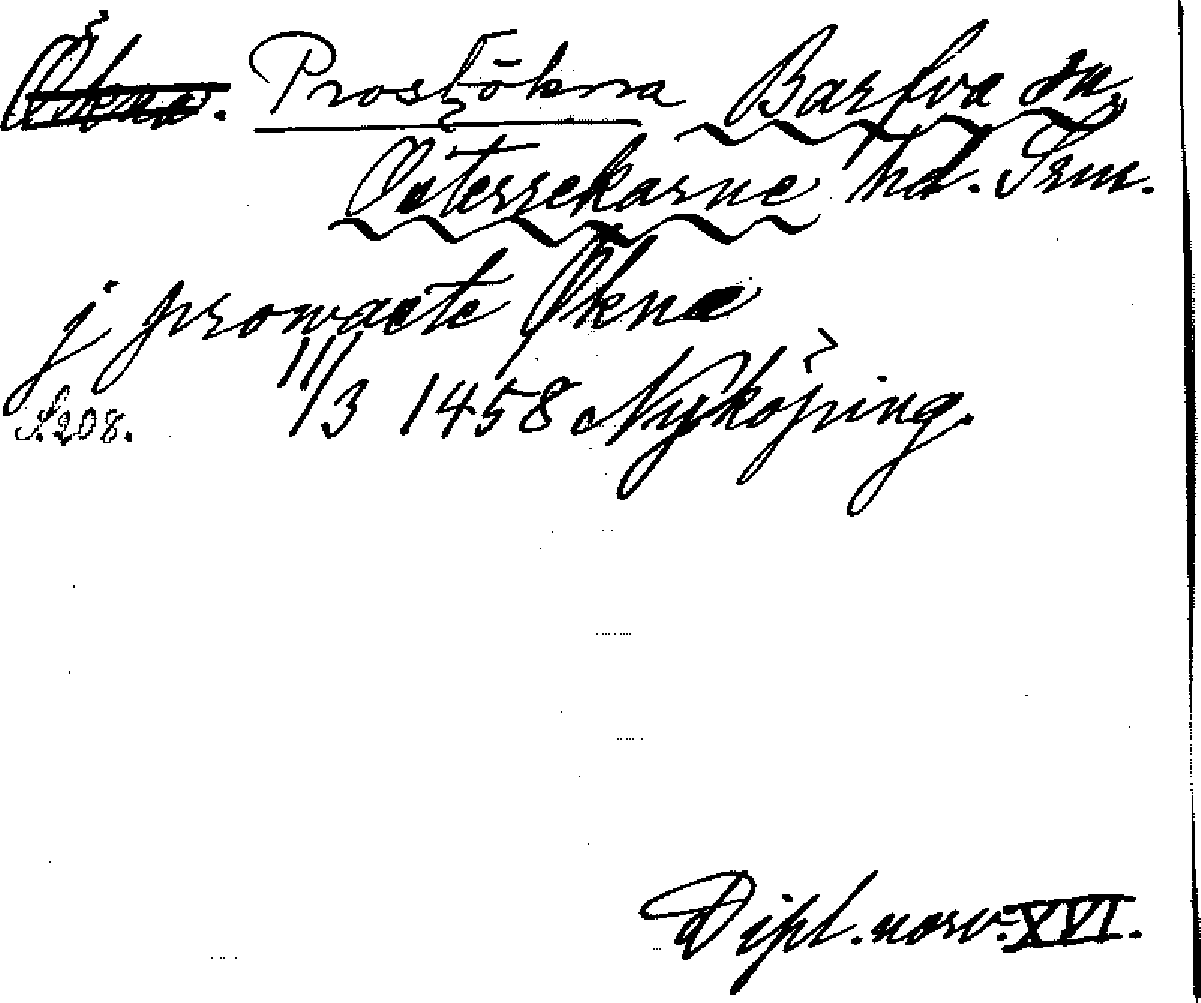 Ökna. Prostökna Barfva sn,
Österrekarne hd. Srm.
j prowaete Økna
S. 208. 11/3 1458 Nyköping.
Dipl. norv. XVI.